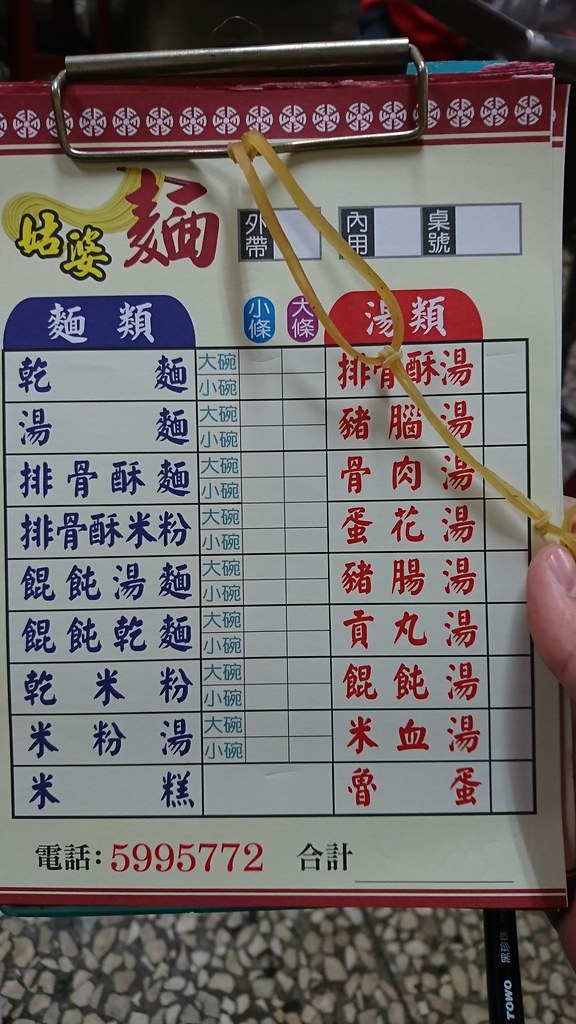 姑婆麵
外帶 內用 桌號
麵類 小條 大條 湯類
乾麵 大碗 小碗 排骨酥湯
湯麵 大碗 小碗 豬腦湯
排骨酥麵 大碗 小碗 骨肉湯
排骨酥米粉 大碗 小碗 蛋花湯
餛飩湯麵 大碗 小碗 豬腸湯
餛飩乾麵 大碗 小碗 貢丸湯
乾米粉 大碗 小碗 餛飩湯
米粉湯 大碗 小碗 米血湯
米糕 魯蛋
電話:5995772 合計
TOWO